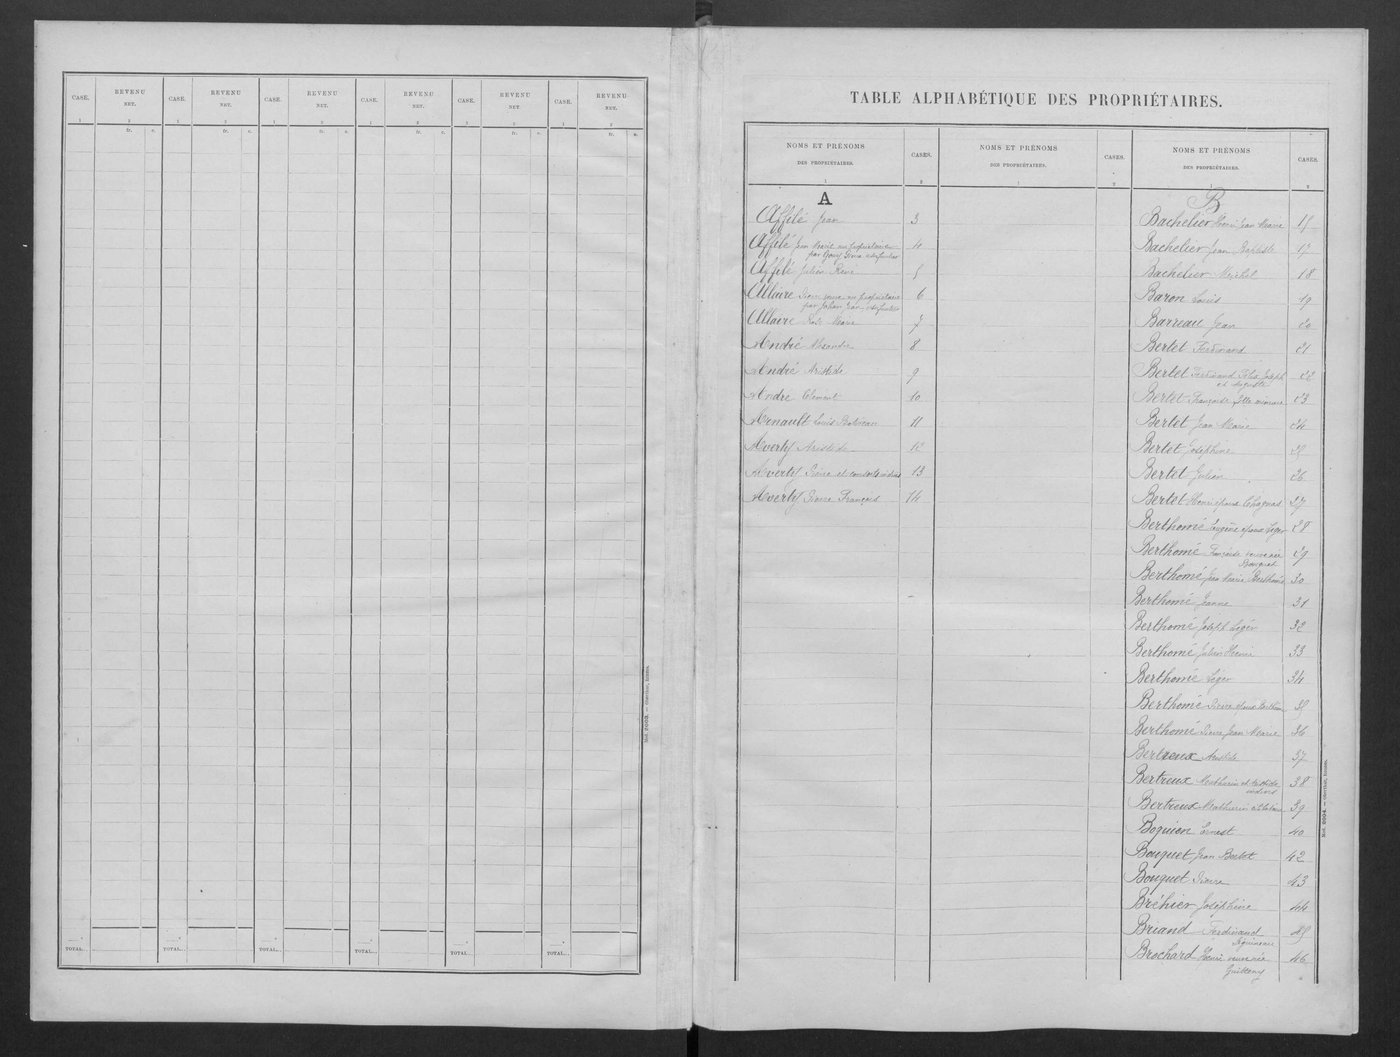 CASE. REVENU NET. CASE. REVENU NET. CASE. REVENU NET. CASE. REVENU NET. CASE. REVENU NET. CASE. REVENU NET.
1 2 1 2 1 2 1 2 1 2 1 2
fr. c. fr. c. fr. c. fr. c. fr. c. fr. c.
TOTAL.. TOTAL.. TOTAL.. TOTAL.. TOTAL.. TOTAL..
TABLE ALPHABÉTIQUE DES PROPRIÉTAIRES.
NOMS ET PRÉNOMS DES PROPRIÉTAIRES. CASES. NOMS ET PRÉNOMS DES PROPRIÉTAIRES. CASES. NOMS ET PRÉNOMS DES PROPRIÉTAIRES. CASES.
1 2 1 2 1 2
A
Affilé Jean 3
Affilé Jean Marie nu propriétaire 4
par usufruitier
Affilé Julien René 5
Allaire nu propriétaire 6
par Jean usufruitier
Allaire Marie 7
André Alexandre 8
André Aristide 9
André Clément 10
Arnault Louis 11
Averty Aristide 12
Averty Pierre et consorts indivis 13
Averty Pierre François 14
B
Bachelier Henri Jean Marie 15
Bachelier Jean Baptiste 17
Bachelier Michel 18
Baron Louis 19
Barreau Jean 20
Bertet Ferdinand 21
Bertet Ferdinand Félix Joseph 22
et Auguste
Bertet Françoise fille mineure 23
Bertet Jean Marie 24
Bertet Joséphine 25
Bertet Julien 26
Bertet Henri époux 27
Berthomé Eugène époux Léger 28
Berthomé Françoise veuve née 29
Bouquet
Berthomé Jean Marie Berthomé 30
Berthomé Jeanne 31
Berthomé Joseph Léger 32
Berthomé Julien Henri 33
Berthomé Léger 34
Berthomé Pierre époux 35
Berthomé Pierre Jean Marie 36
Bertreux Aristide 37
Bertreux Mathurin et Aristide 38
indivis
Bertreux Mathurin 39
Boquien Ernest 40
Bouquet Jean Bertet 42
Bouquet Pierre 43
Bréhier Joséphine 44
Briand Ferdinand 45
Brochard Henri veuve née 46